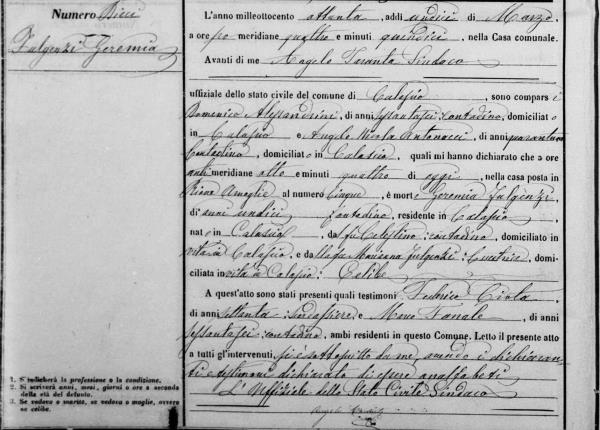 Numero Dieci
Fulgenzi Geremia
L'anno milleottocento ottanta, addì undici di Marzo,
a ore po meridiane quattro e minuti quindici, nella Casa comunale.
Avanti di me Angelo Taranta Sindaco
uffiziale dello stato civile del comune di Calascio, sono comparsi
Domenico Alessandrini, di anni sessantasei: contadino, domiciliato
in Calascio e Angelo Nicola Antonacci, di anni quaranta
Contadino, domiciliato in Calascio, quali mi hanno dichiarato che a ore
anti meridiane otto e minuti quattro di oggi, nella casa posta in
Rione al numero Cinque, è morto Geremia Fulgenzi
di anni undici contadino, residente in Calascio,
nato in Calascio, da fu Celestino: contadino, domiciliato in
vita a Calascio, e dalla fu Marianna Fulgenzi: Cucitrice, domi-
ciliata in vita a Calascio: Celibe
A quest'atto sono stati presenti quali testimoni Federico Ciola
di anni settanta: e, di anni
sessantasei: contadino, ambi residenti in questo Comune. Letto il presente atto
a tutti gl'intervenuti, si è sottoscritto da me, avendo i dichiaran-
ti e testimoni dichiarato di essere analfabeti
L'Uffiziale dello Stato Civile Sindaco
Angelo
1. S'indicherà la professione o la condizione.
2. Si scriverà anni, mesi, giorni o ore a seconda
della età del defunto.
3. Se vedovo o marito, se vedova o moglie, ovvero
se celibe.